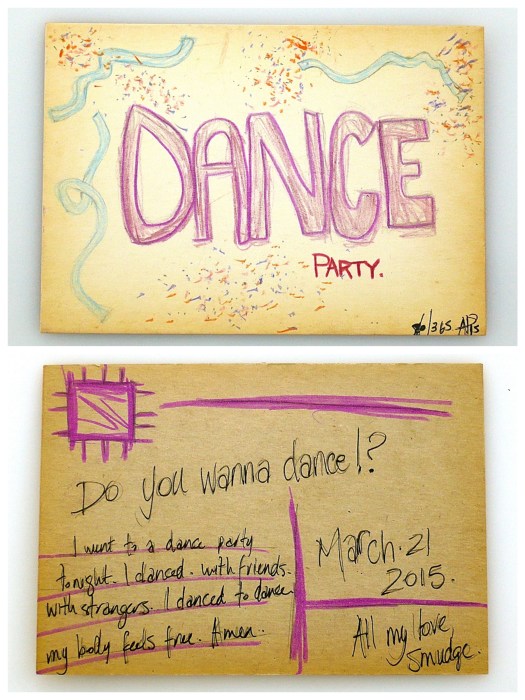 DANCE
PARTY.
/365
Do you wanna dance!?
I went to a dance party
tonight. I danced. with friends.
with strangers. I danced to dance.
my body feels free. Amen.
March. 21
2015.
All my love,
Smudge.